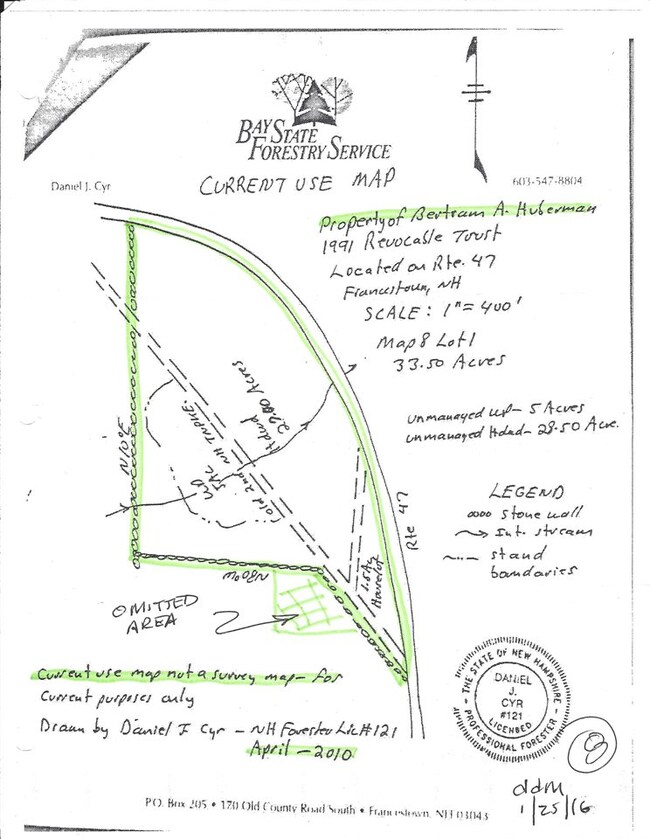 BAY STATE
FORESTRY SERVICE
Daniel J. Cyr
603-547-8804
CURRENT USE MAP
Property of Bertram A. Huberman
1991 Revocable Trust
Located on Rte. 47
Francestown, NH
SCALE: 1"= 400'
Map 8 Lot 1
33.50 Acres
unmanaged WP- 5 Acres
unmanaged Hdwd- 28.50 Acre.
LEGEND
oooo stone wall
Int. stream
stand
boundaries
N10°E
WP
5AC
Hdwd
(old 2nd NH TNPKE.
Rte 47
N80°W
OMITTED
AREA
Current use map not a survey map- for
Current purposes only
Drawn by Daniel J Cyr - NH Forester Lic# 121
April - 2010
THE STATE OF NEW HAMPSHIRE
DANIEL
J.
CYR
#121
LICENSED
PROFESSIONAL FORESTER
8
ddm
1/25/16
P.O. Box 205 • 170 Old County Road South • Francestown, NH 03043